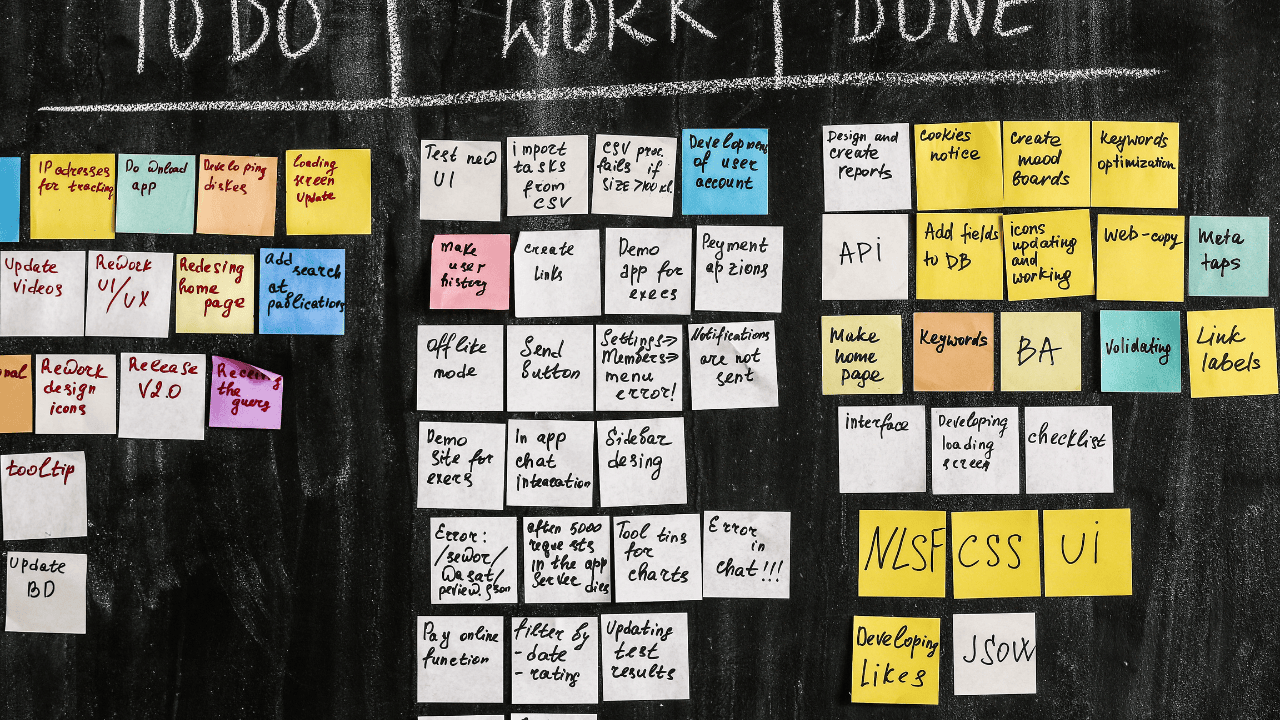 TO DO WORK DONE
IP adresses
for tracking
Download
app
Developing
diskes
loading
screen
update
Update
videos
ReWork
UI/UX
Redesing
home
page
add
search
at
pablications
nal
ReWork
design
icons
Release
V2.0
the
tooltip
Update
BD
Test new
UI
import
tasks
from
CSV
CSV proc.
fails if
size >100
Development
of user
account
make
user
history
create
links
Demo
app for
execs
Peyment
apzions
Offlike
mode
Send
button
Settings=>
Members=>
menu
error!
Notifications
are not
sent
Demo
site for
execs
In app
chat
Sidebar
desing
Error:
after 5000
requests
in the app
server dies
Tool tins
for
charts
Error
in
chat!!!
Pay online
function
filter by
- date
- rating
Updating
test
results
Design and
create
reports
cookies
notice
Create
mood
boards
keywords
optimization
API
Add fields
to DB
icons
updating
and
working
Web-copy
Meta
taps
Make
home
page
Keywords
BA
Validating
Link
labels
interface
Developing
loading
screen
checklist
NLSF
CSS
Ui
Developing
Likes
JSON